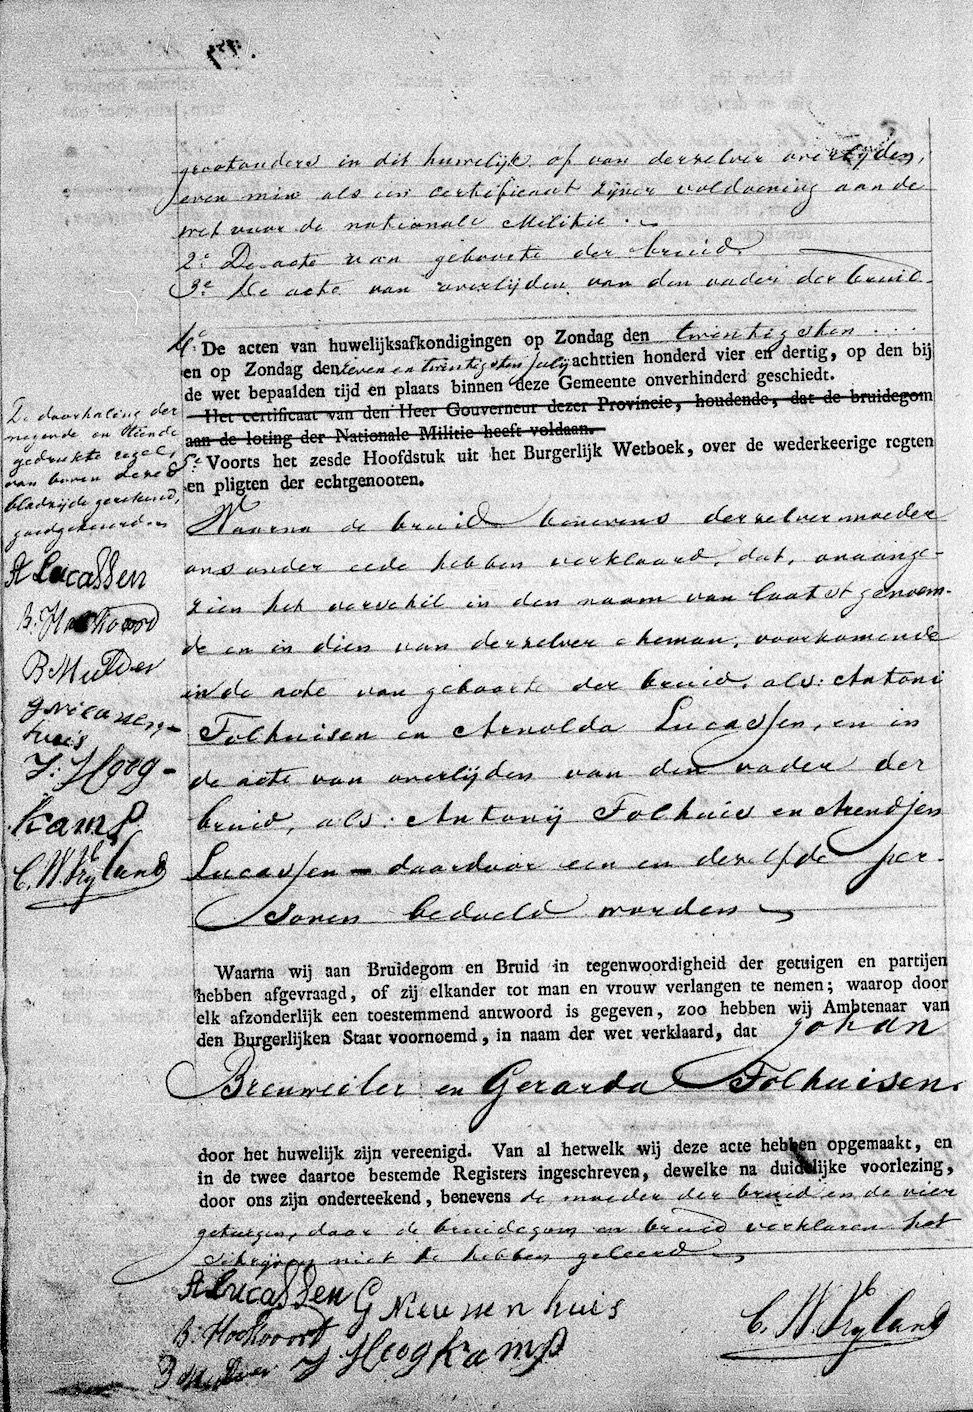 grootouders in dit huwelijk of van derzelver overlijden,
even min als een certificaat zijner voldoening aan de
wet voor de nationale Militie.
2e De acte van geboorte der bruid.
3e De acte van overlijden van den vader der bruid.
4e De acten van huwelijksafkondigingen op Zondag den twintigsten
en op Zondag den zeven en twintigsten July achttien honderd vier en dertig, op den bij
de wet bepaalden tijd en plaats binnen deze Gemeente onverhinderd geschiedt.
Het certificaat van den Heer Gouverneur dezer Provincie, houdende, dat de bruidegom
aan de loting der Nationale Militie heeft voldaan.
5e Voorts het zesde Hoofdstuk uit het Burgerlijk Wetboek, over de wederkeerige regten
en pligten der echtgenooten.
De doorhaling der
negende en tiende
gedrukte regel,
van boven deze
bladzijde gerekend,
goedgekeurd
A Lucassen
B: Hookvoord
B Mulder
G Nieuwen-
huis
J: Hoog-
kamp
C. W. Ryland
Waarna de bruid benevens derzelver moeder
ons onder eede hebben verklaard, dat, onaange-
zien het verschil in den naam van laatst genoem-
de en in dien van derzelver eheman, voorkomende
in de acte van geboorte der bruid, als: Antoni
Folhuisen en Arnolda Lucassen, en in
de acte van overlijden van den vader der
bruid, als: Antonij Folhuis en Arendjen
Lucassen - daardoor een en dezelfde per-
sonen bedoeld worden
Waarna wij aan Bruidegom en Bruid in tegenwoordigheid der getuigen en partijen
hebben afgevraagd, of zij elkander tot man en vrouw verlangen te nemen; waarop door
elk afzonderlijk een toestemmend antwoord is gegeven, zoo hebben wij Ambtenaar van
den Burgerlijken Staat voornoemd, in naam der wet verklaard, dat Johan
Breuweiler en Gerarda Folhuisen.
door het huwelijk zijn vereenigd. Van al hetwelk wij deze acte hebben opgemaakt, en
in de twee daartoe bestemde Registers ingeschreven, dewelke na duidelijke voorlezing,
door ons zijn onderteekend, benevens de moeder der bruid en de vier
getuigen, daar de bruidegom en bruid verklaren het
schrijven niet te hebben geleerd
A Lucassen G Nieuwenhuis
B: Hookvoort C. W. Ryland
B Mulder J Hoogkamp